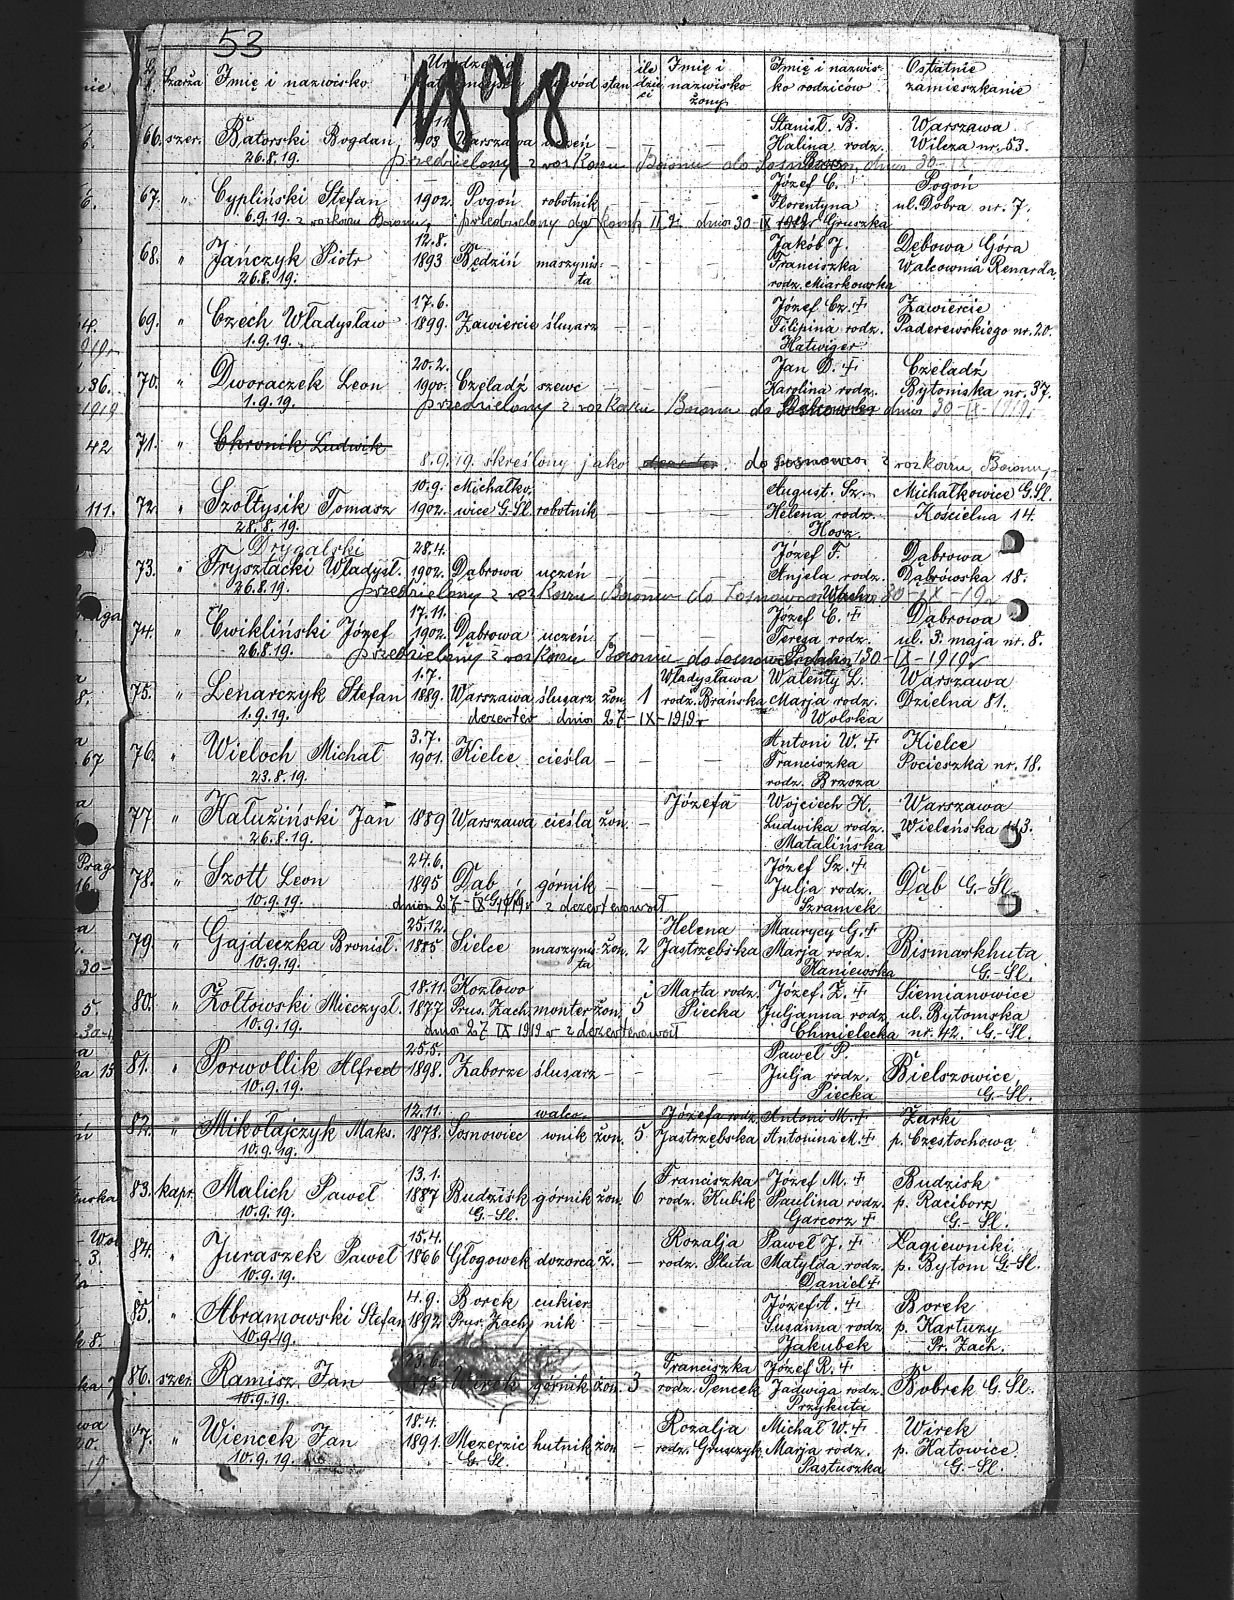 53
1878
L. Szarża Imię i nazwisko zawód stan ile dzieci Imię i nazwisko żony Imię i nazwisko rodziców Ostatnie zamieszkanie
Stanisł. B. Warszawa
66. szer. Batorski Bogdan 1903 Warszawa uczeń — — — Halina rodz. Wilcza nr. 53.
26.8.19. przedzielony z rozkazu Baonu do dnia 30-IX
Józef C. Pogoń
67. " Cypliński Stefan 1902. Pogoń robotnik — — — Florentyna ul. Dobra nr. 7.
6.9.19. z rozkazu Baonu przedzielony do komp. II dnia 30-IX 1919r Gruszka
12.8. Jakób J. Dębowa Góra
68. " Jańczyk Piotr 1893 Będziń maszynis- — — — Franciszka Walcownia Renarda
26.8.19. ta rodz. Miarkowska
17.6. Józef Cz. + Zawiercie
69. " Czech Władysław 1899. Zawiercie ślusarz — — — Filipina rodz. Paderewskiego nr. 20.
1.9.19. Hatwiger
20.2. Jan D. + Czeladź
70. " Dworaczek Leon 1900. Czeladź szewc — — — Karolina rodz. Bytomska nr. 37.
1.9.19. przedzielony z rozkazu Baonu do dnia 30-IX-1919r
71. " Chronik Ludwik
8.9.19. skreślony jako do Sosnowca z rozkazu Baonu
10.9. Michałko- August. Sz. Michałkowice G.Sl.
72. " Szołtysik Tomasz 1902. wice G-Sl. robotnik — — — Helena rodz. Kościelna 14.
28.8.19. Hosz
Drygalski 28.4. Józef F. Dąbrowa
73. " Frysztacki Władysł. 1902. Dąbrowa uczeń — — — Anjela rodz. Dąbrówska 18.
26.8.19. przedzielony z rozkazu Baonu do Sosnowca 30-IX-19r
17.11. Józef C. + Dąbrowa
74. " Ćwikliński Józef 1902. Dąbrowa uczeń — — — Teresa rodz. ul. 3. maja nr. 8.
26.8.19. przedzielony z rozkazu Baonu do Sosnowca 30-IX-1919r
1.7. Władysława Walenty L. Warszawa
75. " Lenarczyk Stefan 1889. Warszawa ślusarz żon. 1 rodz. Brańska Marja rodz. Dzielna 81.
1.9.19. dezerter dnia 27-IX-1919r Wolska
3.7. Antoni W. + Kielce
76. " Wieloch Michał 1901. Kielce cieśla — — — Franciszka Pocieszka nr. 18.
23.8.19. rodz. Brzoza
Józefa Wojciech K. Warszawa
77 " Kałuziński Jan 1889 Warszawa cieśla żon. — Ludwika rodz. Wieleńska
26.8.19. Matalińska
24.6. Józef Sz. +
78. " Szott Leon 1895 Dąb górnik — — — Julja rodz. Dąb G.-Sl.
10.9.19. dnia 27-IX 1919r zdezerterował Szramek
25.12. Helena Maurycy G. +
79. " Gajdeczka Bronisł. 1885 Sielce maszynis- żon. 2 Jastrzębska Marja rodz. Bismarkhuta
10.9.19. ta Kaniewska G.-Sl.
18.11. Kozłowo Marta rodz. Józef. Ż. + Siemianowice
80. " Żołtowski Mieczysł. 1877 Prus. Zach. monter żon. 5 Piecka Juljanna rodz. ul. Bytomska
10.9.19. dnia 27 IX 1919r zdezerterował Chmielecka nr. 42. G.-Sl.
25.5. Paweł P.
81. " Porwollik Alfred 1898. Zaborze ślusarz — — — Julja rodz. Bielszowice
10.9.19. Piecka G.-Sl.
12.11. walco- Józefa rodz. Antoni M. + Żarki
82. " Mikołajczyk Maks. 1878. Sosnowiec wnik żon. 5 Jastrzębska Antonina M. + p. Częstochową
10.9.19.
13.1. Franciszka Józef M. + Budzisk
83. kapr. Malich Paweł 1887 Budzisk górnik żon. 6 rodz. Kubik Paulina rodz. p. Racibórz
10.9.19. G.-Sl. Garcorz + G-Sl.
15.4. Rozalja Paweł J. + Łagiewniki
84. " Juraszek Paweł 1866 Głogowek dozorca ż. — rodz. Sluta Matylda rodz. p. Bytom G-Sl.
10.9.19. Daniel +
4.9. Borek cukier- Józef A. + Borek
85. " Abramowski Stefan 1892. Prus. Zach. nik — — — Susanna rodz. p. Kartuzy
10.9.19. Jakubek Pr. Zach.
23.6. Franciszka Józef R. +
86. szer. Ramisz Jan 1875 Wirek górnik żon. 3 rodz. Pencek Jadwiga rodz. Bobrek G. Sl.
10.9.19. Przykuta
18.4. Rozalja Michał W. + Wirek
87. " Wiencek Jan 1891. hutnik żon — rodz. Marja rodz. p. Katowice
10.9.19. G.-Sl. Pastuszka G.-Sl.